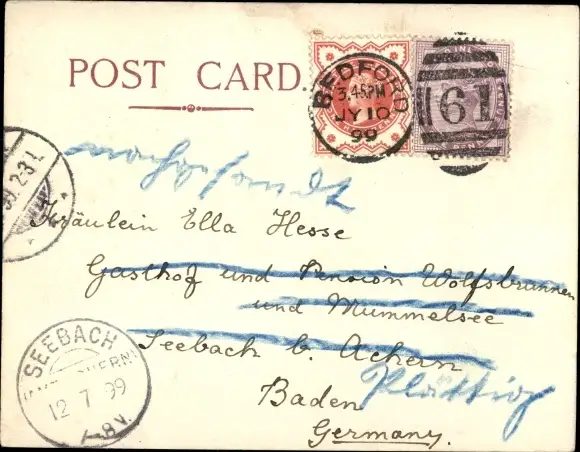 POST CARD.
BEDFORD
3.45PM
JY 10
99
61
nachgesandt
99. 2-3 I.
Fräulein Ella Hesse
Gasthof und Pension Wolfsbrunnen
und Mummelsee
Seebach b. Achern
Plättig
Baden
Germany.
SEEBACH
12 7 99
7-8 V.